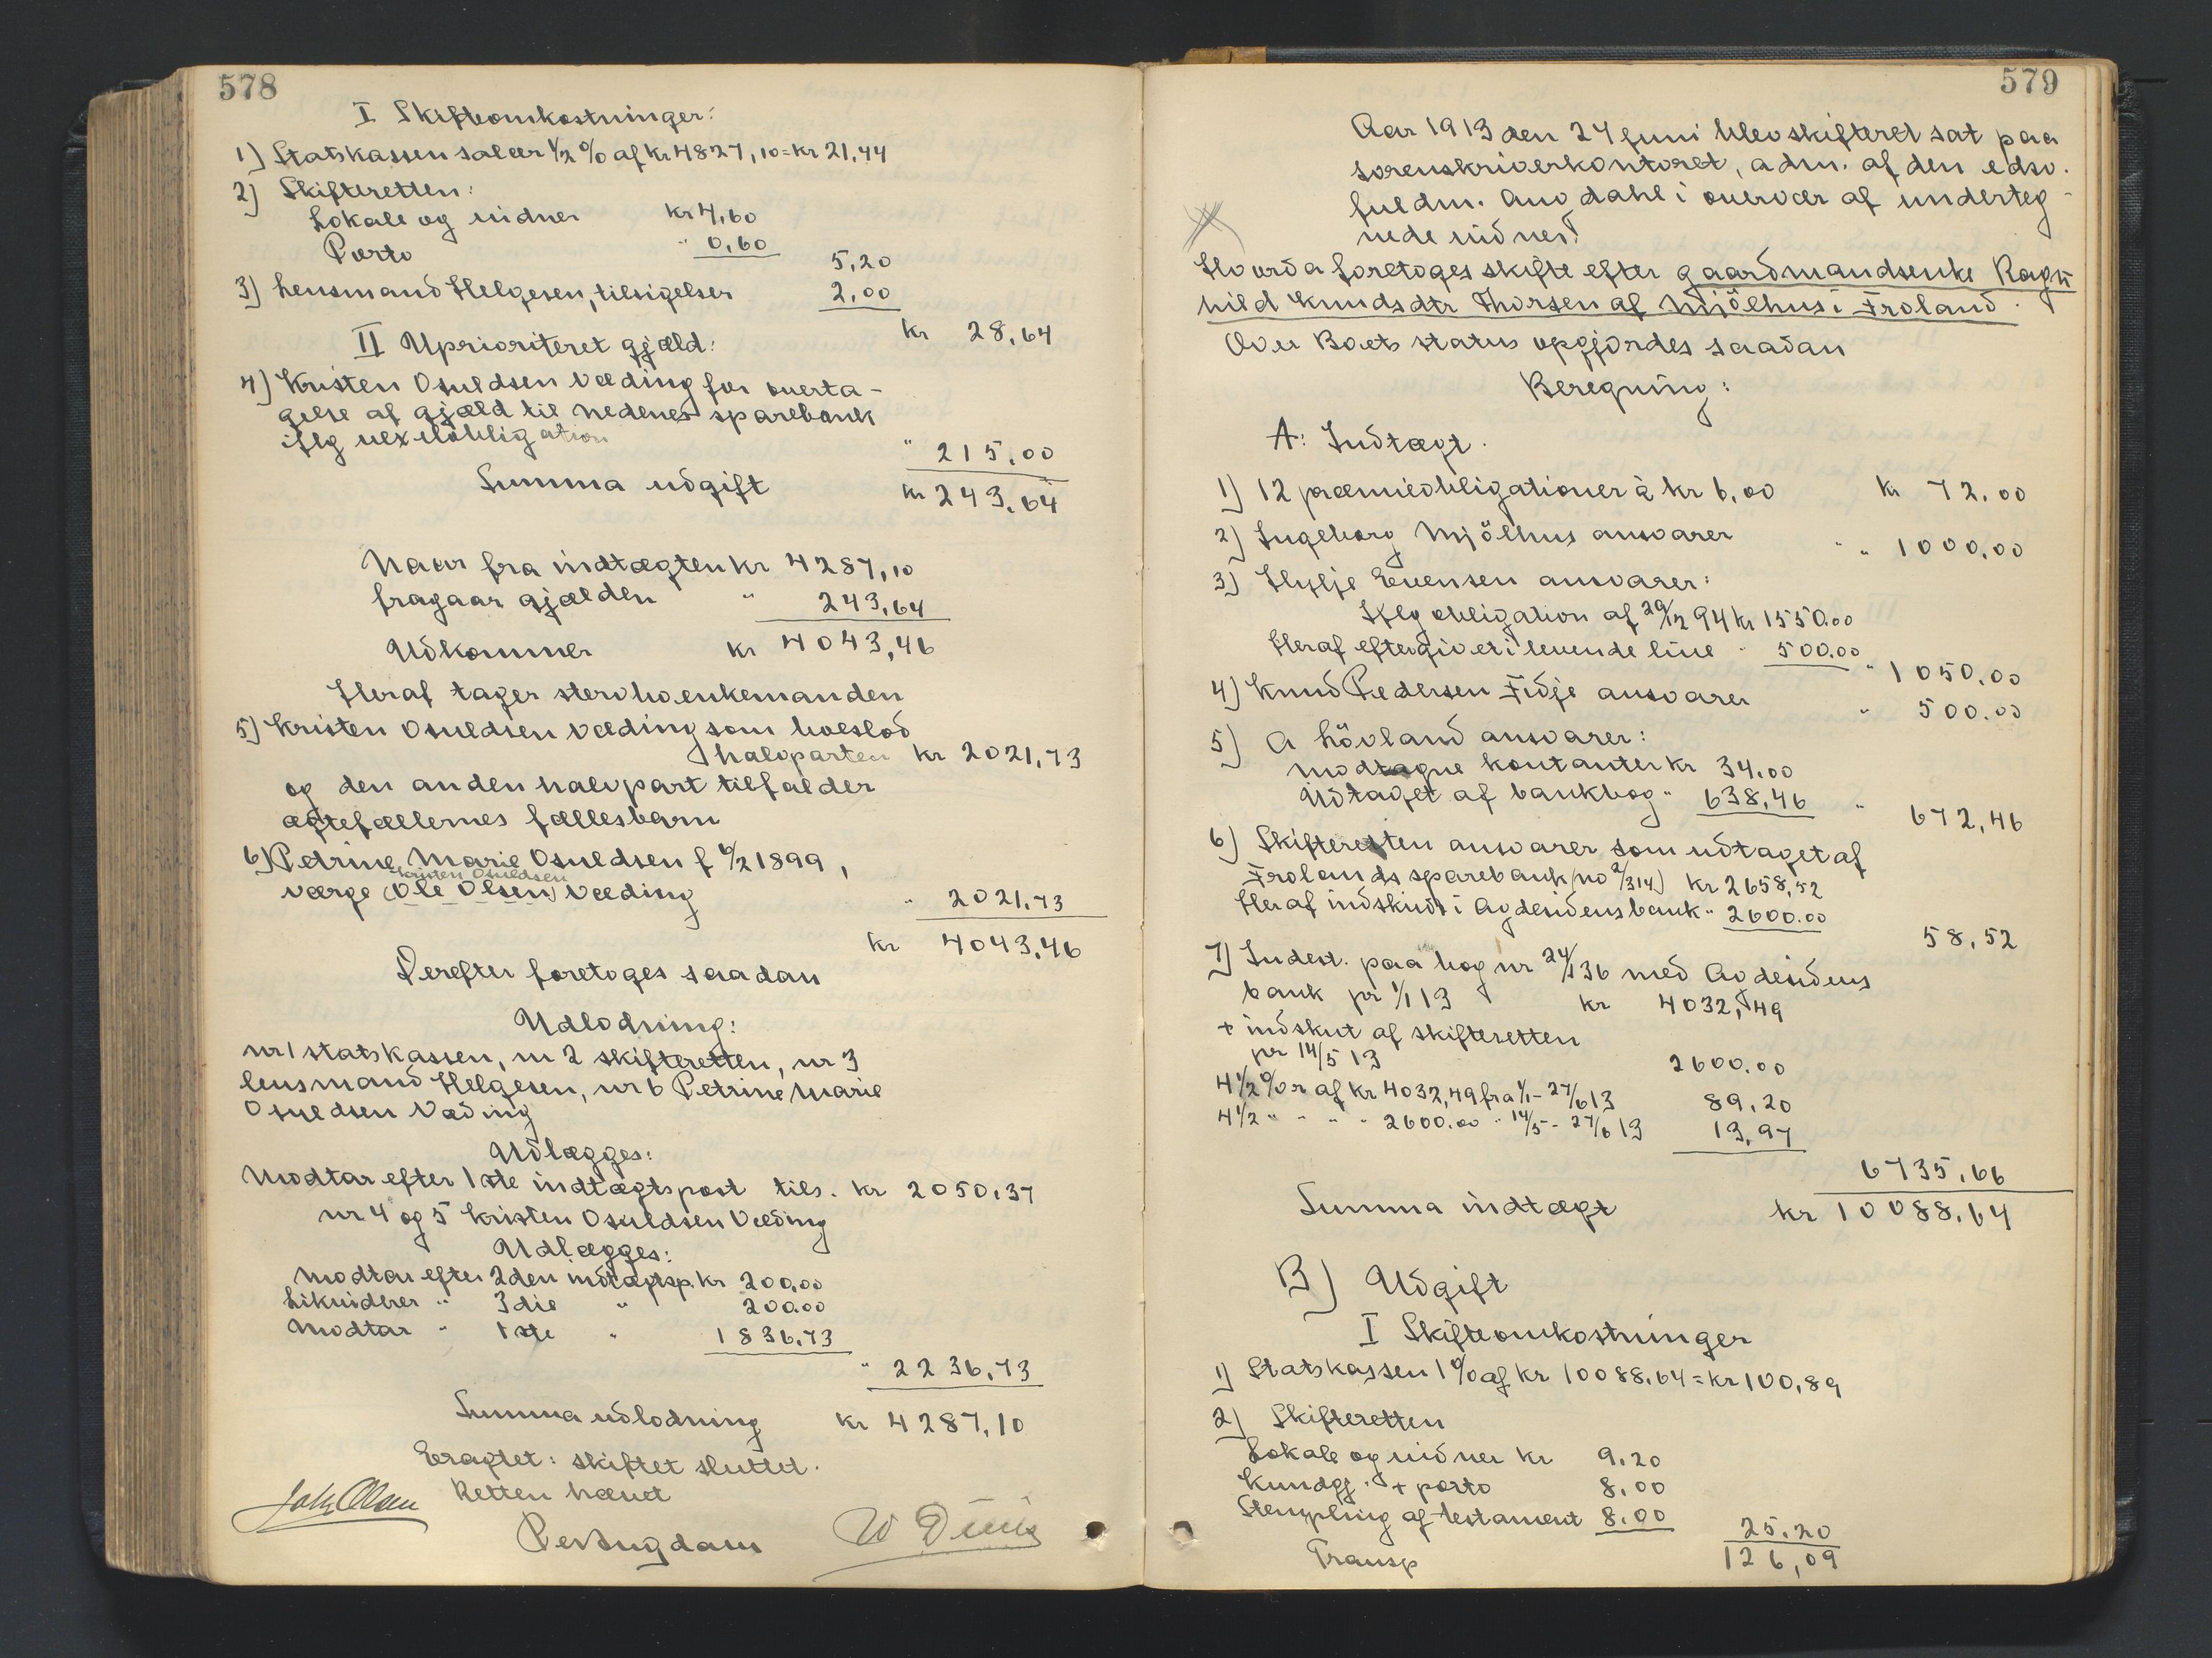 578
I Skifteomkostninger:
1) Statskassen salær 1/2 % af kr 4827,10 = kr 21,44
2) Skifteretten:
Lokale og vidner kr 4,60
Porto " 0,60
5,20
3) Lensmand Helgesen, tilsigelser 2,00
kr 28,64
II Uprioriteret gjæld:
4) Kristen Osuldsen Væding for overta-
gelse af gjæld til Nedenes sparebank
iflg vexelobligation " 215,00
Summa udgift kr 243,64
Naar fra indtægten kr 4287,10
fragaar gjælden " 243,64
Udkommer kr 4043,46
Heraf tager stervboenkemanden
5) Kristen Osuldsen Væding som boeslod
halvparten kr 2021,73
og den anden halvpart tilfalder
ægtefællernes fællesbarn
6) Petrine Marie Osuldsen f 6/2 1899,
Kristen Osuldsen
værge (Ole Olsen) Væding " 2021,73
kr 4043,46
Derefter foretoges saadan
Udlodning:
nr 1 statskassen, nr 2 skifteretten, nr 3
lensmand Helgesen, nr 6 Petrine Marie
Osuldsen Væding
Udlægges:
Modtar efter 1ste indtægtspost tils. kr 2050,37
nr 4 og 5 Kristen Osuldsen Væding
Udlægges:
Modtar efter 2den indtægtsp. kr 200,00
Likviderer " 3die " 200,00
Modtar " 1ste " 1836,73
" 2236,73
Summa udlodning kr 4287,10
Eragtet: skiftet sluttet.
Retten hævet
Joh Olsen
Per Augdahl
579
Aar 1913 den 24 juni blev skifteret sat paa
sorenskriverkontoret, adm. af den edsv.
fuldm. Auvdahl i overvær af underteg-
nede vidner!
Hvorda foretoges skifte efter gaardmandsenke Ragn-
hild Knudsdtr Thorsen af Mjölhus i Froland.
Over Boets status opgjordes saadan
Beregning:
A: Indtægt.
1) 12 præmieobligationer à kr 6,00 kr 72.00
2) Ingeborg Mjölhus ansvarer " " 1000,00
3) Hylje Evensen ansvarer:
Iflg obligation af 29/12 94 kr 1550.00
Heraf eftergivet i levende live " 500.00
" 1050.00
4) Knud Pedersen Fidje ansvarer " 500.00
5) A Hövland ansvarer:
modtagne kontanter kr 34.00
Udtaget af bankbog " 638,46 " 672,46
6) Skifteretten ansvarer som udtaget af
Frolands sparebank (no 2/314) kr 2658,52
Heraf indskudt i Agdesidens bank " 2600.00
58,52
7) Indest. paa bog nr 24/136 med Agdesidens
bank pr 1/1 13 kr 4032,49
+ indskut af skifteretten
pr 14/5 13 2600.00
4 1/2 % r af kr 4032,49 fra 1/1 - 27/6 13 89,20
4 1/2 " " " " 2600.00 " 14/5 - 27/6 13 13,97
6735,66
Summa indtægt kr 10088,64
B) Udgift
I Skifteomkostninger
1) Statskassen 1 % af kr 10088,64 = kr 100,89
2) Skifteretten
Lokale og vidner kr 9.20
Kundgj. + porto 8,00
Stempling af testament 8.00
25.20
Transp 126,09